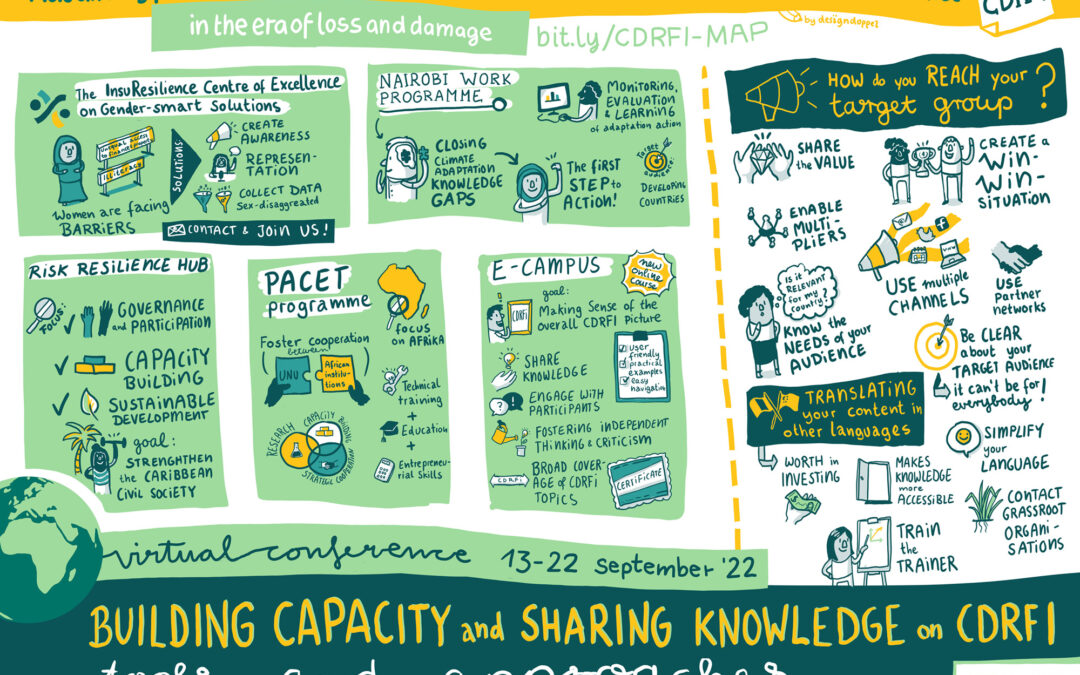 by designdoppel
in the era of loss and damage
bit.ly/CDRFI-MAP
The InsuResilience Centre of Excellence
on Gender-smart Solutions
Unequal access
to finance
Illiteracy
SOLUTIONS
CREATE
AWARENESS
REPRESEN-
TATION
COLLECT DATA
Sex-disaggreated
Women are facing
BARRIERS
CONTACT & JOIN US!
NAIROBI WORK
PROGRAMME
MONITORING,
EVALUATION
& LEARNING
of adaptation action
CLOSING
CLIMATE
ADAPTATION
KNOWLEDGE
GAPS
The first
STEP to
Action!
Target
DEVELOPING
COUNTRIES
RISK RESILIENCE HUB
FOCUS:
GOVERNANCE
and PARTICIPATION
CAPACITY
BUILDING
SUSTAINABLE
DEVELOPMENT
goal:
STRENGTHEN
the CARIBBEAN
CIVIL SOCIETY
PACET
programme
focus
on AFRIKA
Foster cooperation
between
UNU
African
institu-
tions
RESEARCH
CAPACITY BUILDING
STRATEGIC COOPERATION
Technical
training
+
Education
+
Entrepreneu-
rial Skills
E-CAMPUS
new
online
course
goal:
CDRFI
Making Sense of the
overall CDRFI Picture
SHARE
KNOWLEDGE
user
friendly
practical
examples
easy
navigation
ENGAGE WITH
PARTICIPANTS
FOSTERING INDEPENDENT
THINKING & CRITICISM
CDRFI
BROAD COVER-
AGE OF CDRFI
TOPICS
CERTIFICATE
HOW do you REACH your
target group?
SHARE
the VALUE
CREATE a
WIN-
WIN-
SITUATION
ENABLE
MULTI-
PLIERS
USE multiple
CHANNELS
USE
Partner
networks
Is it
RELEVANT
for my
country?
KNOW the
NEEDS of your
AUDIENCE
Be CLEAR
about your
TARGET AUDIENCE
it can't be for
everybody!
TRANSLATING
your content in
other languages
WORTH in
INVESTING
MAKES
KNOWLEDGE
more
ACCESSIBLE
TRAIN
the
TRAINER
SIMPLIFY
your
LANGUAGE
CONTACT
GRASSROOT
ORGANI-
SATIONS
virtual conference 13-22 september '22
BUILDING CAPACITY and SHARING KNOWLEDGE on CDRFI